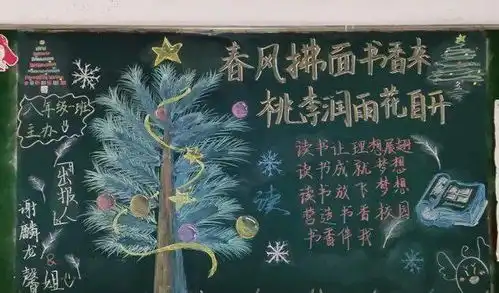 春风拂面书香来
桃李润雨花自开
八年级一班
主办
出报人
谢麟龙
馨
组
读
读书让理想展翅
读书成就梦想
读书放飞梦想
营造书香校园
书香伴我